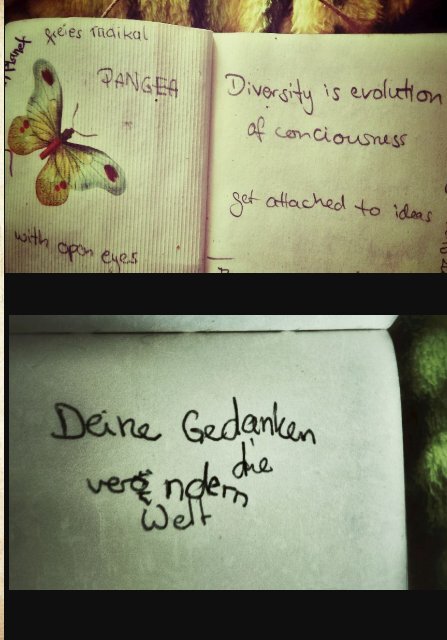 freies Radikal
Planet
PANGEA
with open eyes
Diversity is evolution
of conciousness
get attached to ideas
Deine Gedanken
verändern die
Welt